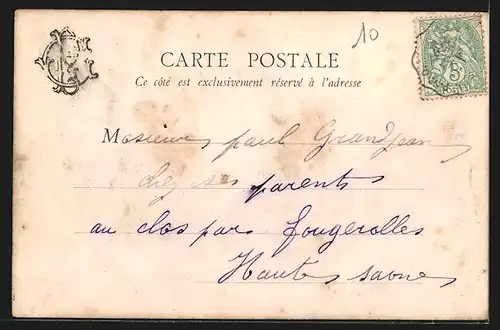 10
CARTE POSTALE
Ce côté est exclusivement réservé à l'adresse
Monsieur paul Grandjean
chez ses parents
au clos par fougerolles
Haute saone